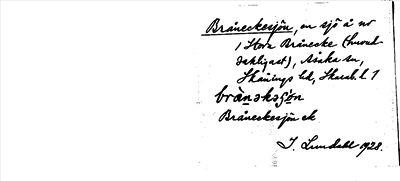 Bråneckesjön, en sjö å nr
1 Stora Brånecke (huvud-
sakligast), Asaka sn,
Skånings hd, Skarab. l.
brånekesjön
Bråneckesjön ek
J. Lundahl 1928.